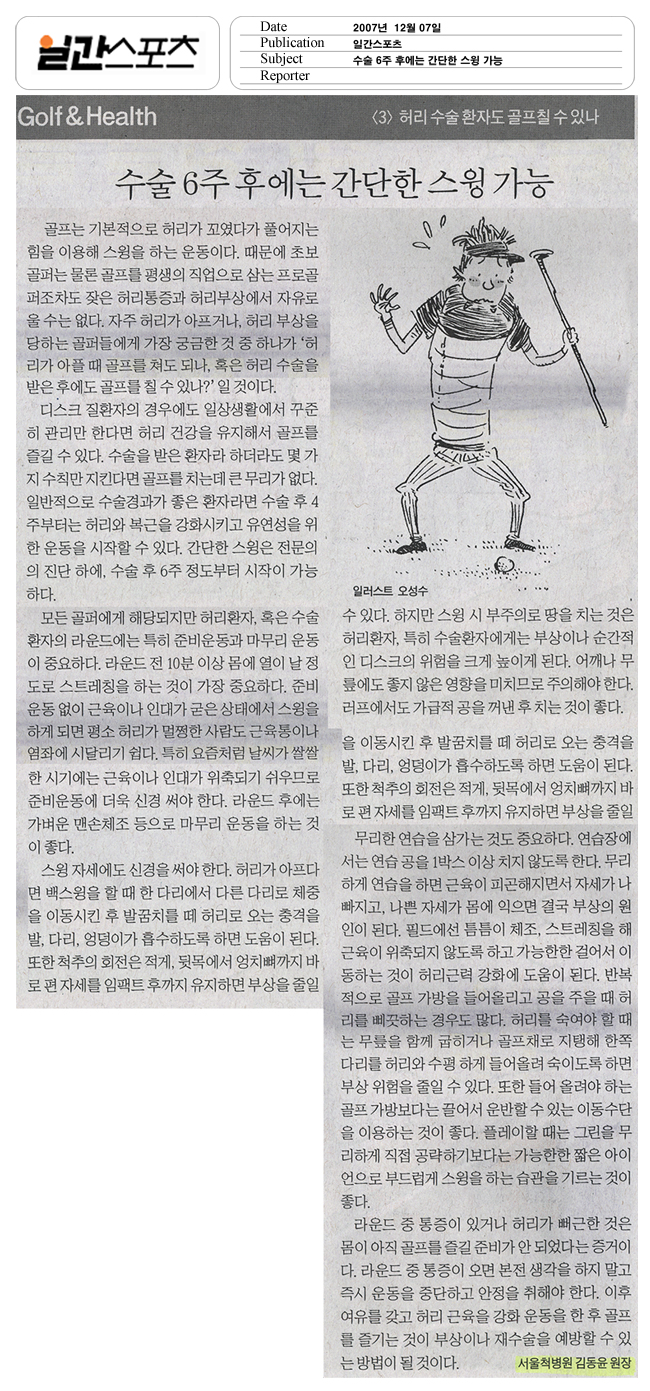 일간스포츠
Date 2007년 12월 07일
Publication 일간스포츠
Subject 수술 6주 후에는 간단한 스윙 가능
Reporter
Golf & Health
〈3〉 허리 수술 환자도 골프칠 수 있나
수술 6주 후에는 간단한 스윙 가능
골프는 기본적으로 허리가 꼬였다가 풀어지는
힘을 이용해 스윙을 하는 운동이다. 때문에 초보
골퍼는 물론 골프를 평생의 직업으로 삼는 프로골
퍼조차도 잦은 허리통증과 허리부상에서 자유로
울 수는 없다. 자주 허리가 아프거나, 허리 부상을
당하는 골퍼들에게 가장 궁금한 것 중 하나가 ‘허
리가 아플 때 골프를 쳐도 되나, 혹은 허리 수술을
받은 후에도 골프를 칠 수 있나?’ 일 것이다.
디스크 질환자의 경우에도 일상생활에서 꾸준
히 관리만 한다면 허리 건강을 유지해서 골프를
즐길 수 있다. 수술을 받은 환자라 하더라도 몇 가
지 수칙만 지킨다면 골프를 치는데 큰 무리가 없다.
일반적으로 수술경과가 좋은 환자라면 수술 후 4
주부터는 허리와 복근을 강화시키고 유연성을 위
한 운동을 시작할 수 있다. 간단한 스윙은 전문의
의 진단 하에, 수술 후 6주 정도부터 시작이 가능
하다.
모든 골퍼에게 해당되지만 허리환자, 혹은 수술
환자의 라운드에는 특히 준비운동과 마무리 운동
이 중요하다. 라운드 전 10분 이상 몸에 열이 날 정
도로 스트레칭을 하는 것이 가장 중요하다. 준비
운동 없이 근육이나 인대가 굳은 상태에서 스윙을
하게 되면 평소 허리가 멀쩡한 사람도 근육통이나
염좌에 시달리기 쉽다. 특히 요즘처럼 날씨가 쌀쌀
한 시기에는 근육이나 인대가 위축되기 쉬우므로
준비운동에 더욱 신경 써야 한다. 라운드 후에는
가벼운 맨손체조 등으로 마무리 운동을 하는 것
이 좋다.
스윙 자세에도 신경을 써야 한다. 허리가 아프다
면 백스윙을 할 때 한 다리에서 다른 다리로 체중
을 이동시킨 후 발꿈치를 떼 허리로 오는 충격을
발, 다리, 엉덩이가 흡수하도록 하면 도움이 된다.
또한 척추의 회전은 적게, 뒷목에서 엉치뼈까지 바
로 편 자세를 임팩트 후까지 유지하면 부상을 줄일
일러스트 오성수
수 있다. 하지만 스윙 시 부주의로 땅을 치는 것은
허리환자, 특히 수술환자에게는 부상이나 순간적
인 디스크의 위험을 크게 높이게 된다. 어깨나 무
릎에도 좋지 않은 영향을 미치므로 주의해야 한다.
러프에서도 가급적 공을 꺼낸 후 치는 것이 좋다.
을 이동시킨 후 발꿈치를 떼 허리로 오는 충격을
발, 다리, 엉덩이가 흡수하도록 하면 도움이 된다.
또한 척추의 회전은 적게, 뒷목에서 엉치뼈까지 바
로 편 자세를 임팩트 후까지 유지하면 부상을 줄일
무리한 연습을 삼가는 것도 중요하다. 연습장에
서는 연습 공을 1박스 이상 치지 않도록 한다. 무리
하게 연습을 하면 근육이 피곤해지면서 자세가 나
빠지고, 나쁜 자세가 몸에 익으면 결국 부상의 원
인이 된다. 필드에선 틈틈이 체조, 스트레칭을 해
근육이 위축되지 않도록 하고 가능한한 걸어서 이
동하는 것이 허리근력 강화에 도움이 된다. 반복
적으로 골프 가방을 들어올리고 공을 주울 때 허
리를 삐끗하는 경우도 많다. 허리를 숙여야 할 때
는 무릎을 함께 굽히거나 골프채로 지탱해 한쪽
다리를 허리와 수평 하게 들어올려 숙이도록 하면
부상 위험을 줄일 수 있다. 또한 들어 올려야 하는
골프 가방보다는 끌어서 운반할 수 있는 이동수단
을 이용하는 것이 좋다. 플레이할 때는 그린을 무
리하게 직접 공략하기보다는 가능한한 짧은 아이
언으로 부드럽게 스윙을 하는 습관을 기르는 것이
좋다.
라운드 중 통증이 있거나 허리가 뻐근한 것은
몸이 아직 골프를 즐길 준비가 안 되었다는 증거이
다. 라운드 중 통증이 오면 본전 생각을 하지 말고
즉시 운동을 중단하고 안정을 취해야 한다. 이후
여유를 갖고 허리 근육을 강화 운동을 한 후 골프
를 즐기는 것이 부상이나 재수술을 예방할 수 있
는 방법이 될 것이다. 서울척병원 김동윤 원장